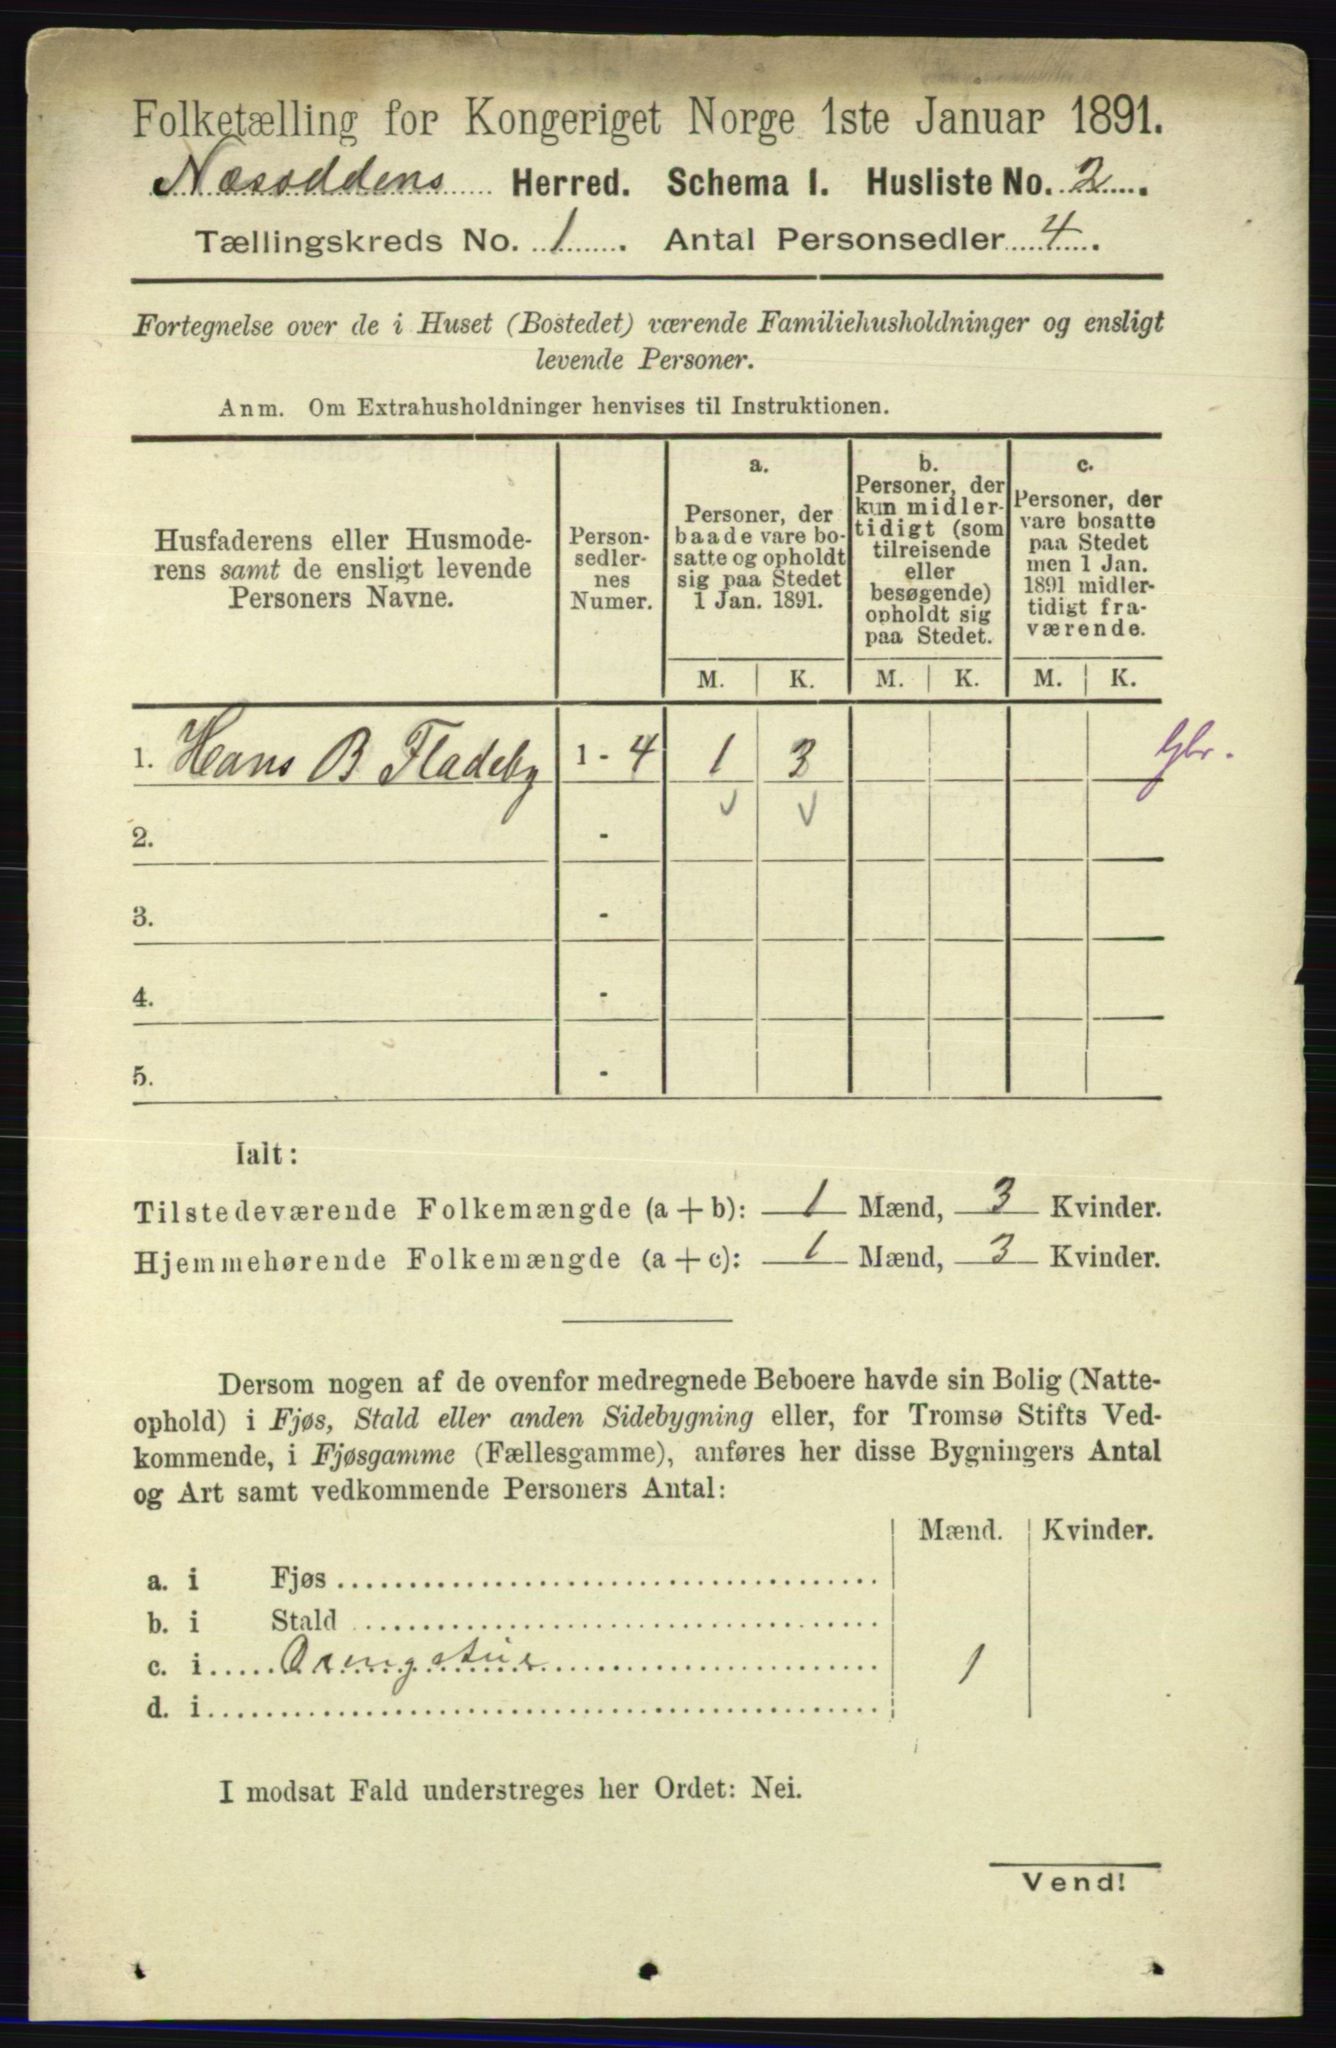 Folketælling for Kongeriget Norge 1ste Januar 1891.
Næsoddens Herred. Schema 1. Husliste No. 2.
Tællingskreds No. 1. Antal Personsedler 4.
Fortegnelse over de i Huset (Bostedet) værende Familiehusholdninger og ensligt
levende Personer.
Anm. Om Extrahusholdninger henvises til Instruktionen.
Husfaderens eller Husmode-
rens samt de ensligt levende
Personers Navne.
Person-
sedler-
nes
Numer.
a.
Personer, der
baade vare bo-
satte og opholdt
sig paa Stedet
1 Jan. 1891.
b.
Personer, der
kun midler-
tidigt (som
tilreisende
eller
besøgende)
opholdt sig
paa Stedet.
c.
Personer, der
vare bosatte
paa Stedet
men 1 Jan.
1891 midler-
tidigt fra-
værende.
M. K. M. K. M. K.
1. Hans B Fladeby 1 - 4 1 3 Gbr.
2. -
3. -
4. -
5. -
Ialt:
Tilstedeværende Folkemængde (a + b): 1 Mænd, 3 Kvinder.
Hjemmehørende Folkemængde (a + c): 1 Mænd, 3 Kvinder.
Dersom nogen af de ovenfor medregnede Beboere havde sin Bolig (Natte-
ophold) i Fjøs, Stald eller anden Sidebygning eller, for Tromsø Stifts Ved-
kommende, i Fjøsgamme (Fællesgamme), anføres her disse Bygningers Antal
og Art samt vedkommende Personers Antal:
Mænd. Kvinder.
a. i Fjøs
b. i Stald
c. i 1
d. i
I modsat Fald understreges her Ordet: Nei.
Vend!